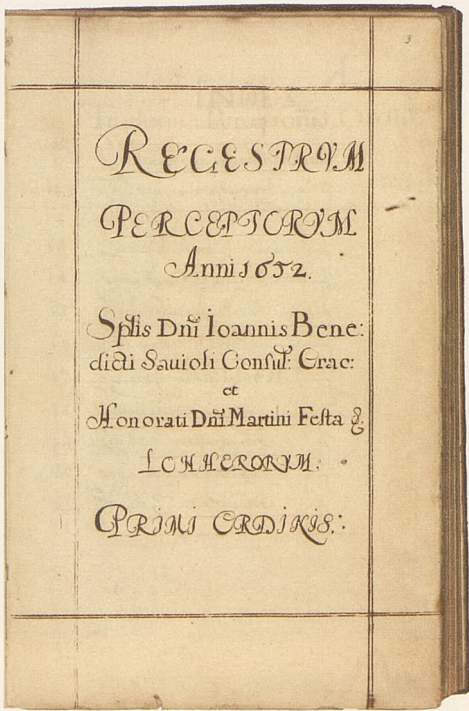 3
REGESTRVM
PERCEPTORVM
Anni 1652.
Sptlis Dnī Ioannis Bene:
dicti Savioli Consul: Crac:
et
Honorati Dnī Martini Festa &
LOHHERORVM.
PRIMI ORDINIS.